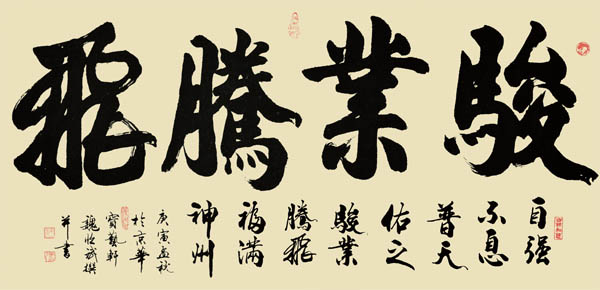 駿業騰飛
自强
不息
普天
佑之
駿業
騰飛
福满
神州
庚寅孟秋
於京華
寳藝軒
魏撰
并書